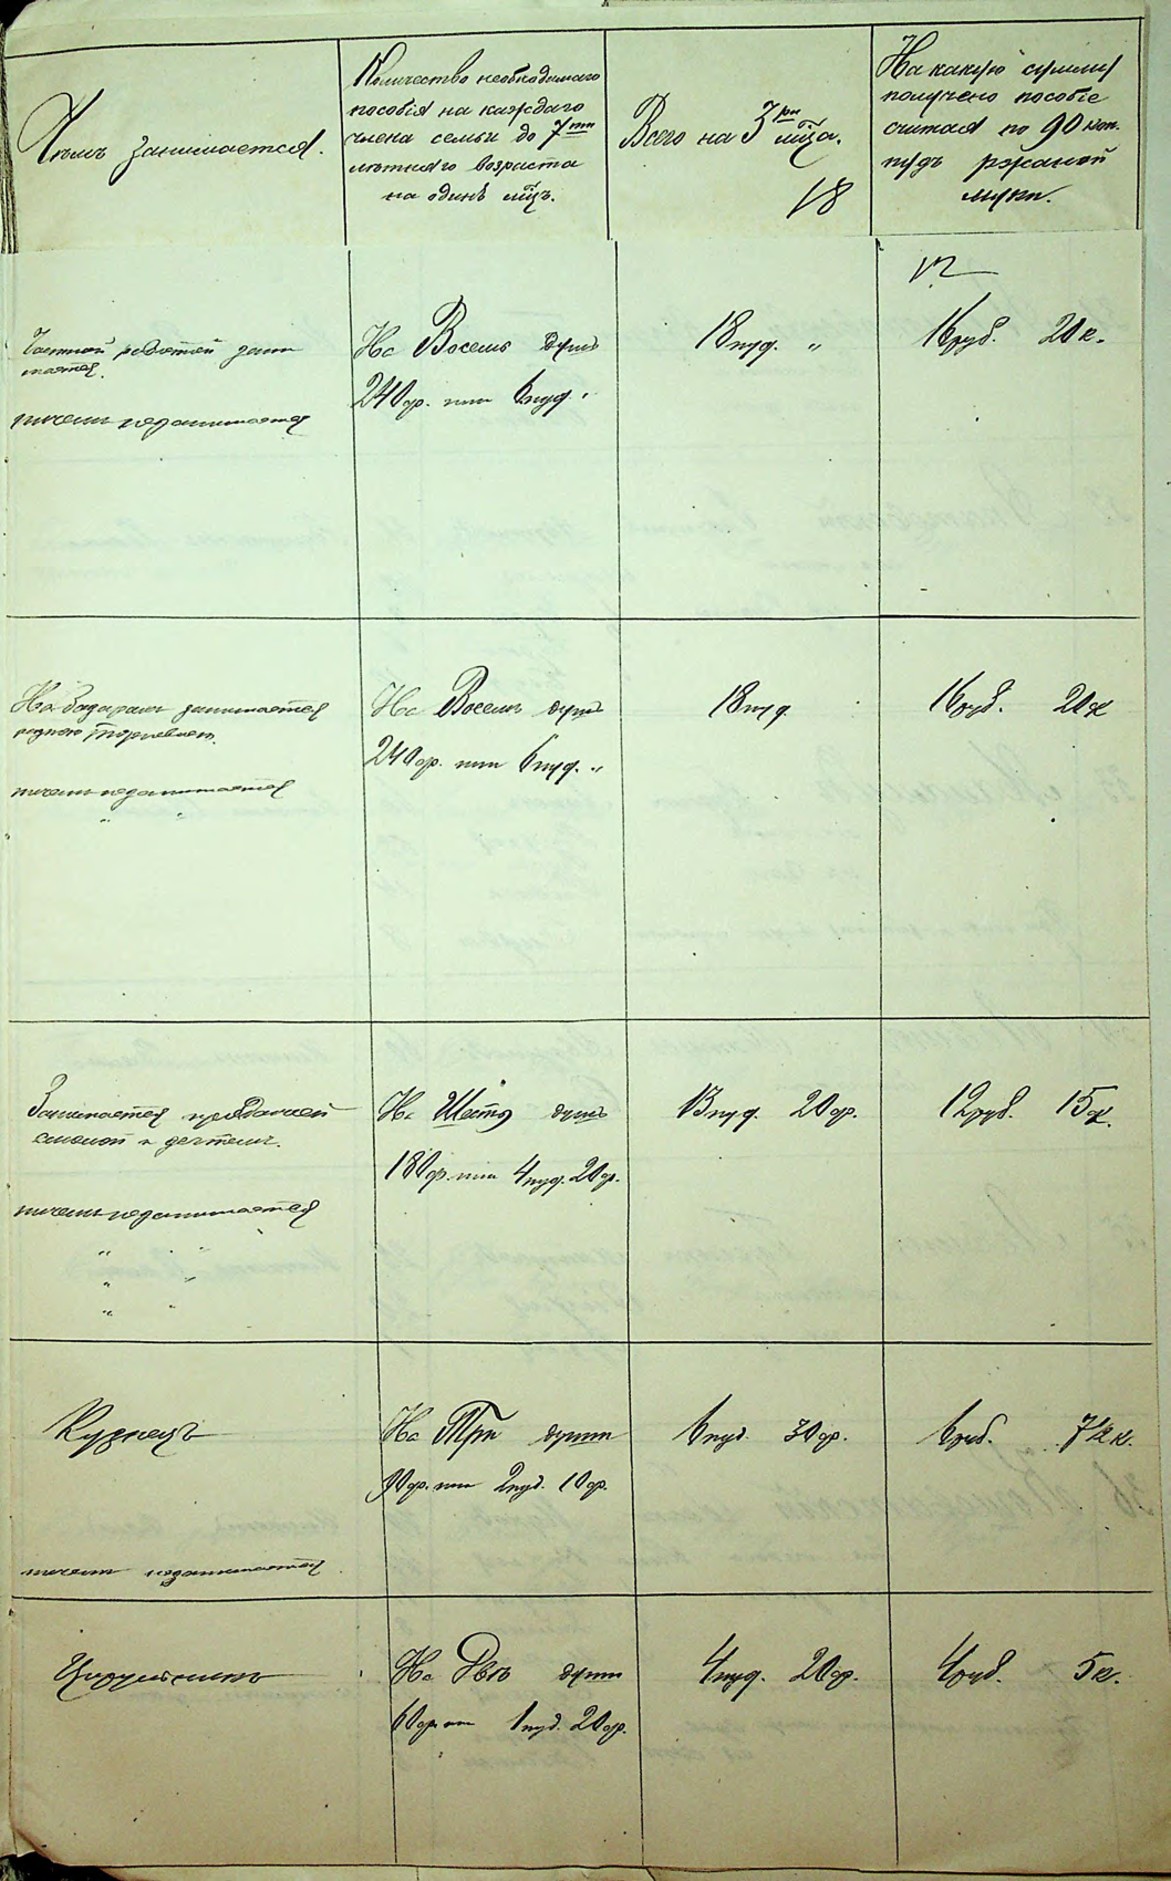 Чѣмъ занимается.
Количество необходимаго
пособія на каждаго
члена семьи до 7ми
лѣтняго возраста
на одинъ мѣц.
Всего на 3ри мѣца.
18
На какую сумму
получено пособіе
считая по 90 коп.
пудъ ржаной
муки.
Частной работой зани
мается.
ничемъ незанимается
На Восемь душъ
240 ф. или 6 пуд. "
18 пуд. "
16 руб. 20 к.
На базарахъ занимается
торговлею.
ничемъ незанимается
" "
На Восемь душъ
240 ф. или 6 пуд. "
18 пуд.
16 руб. 20 к
Занимается продажей
смолой и дегтемъ.
ничемъ незанимается
" "
" "
" "
На Шесть душъ
180 ф. или 4 пуд. 20 ф.
13 пуд. 20 ф.
12 руб. 15 к.
Кузнецъ
ничемъ незанимается
На Три души
90 ф. или 2 пуд. 10 ф.
6 пуд. 30 ф.
6 руб. 7½ к.
На Двѣ души
60 ф. или 1 пуд. 20 ф.
4 пуд. 20 ф.
4 руб. 5 к.